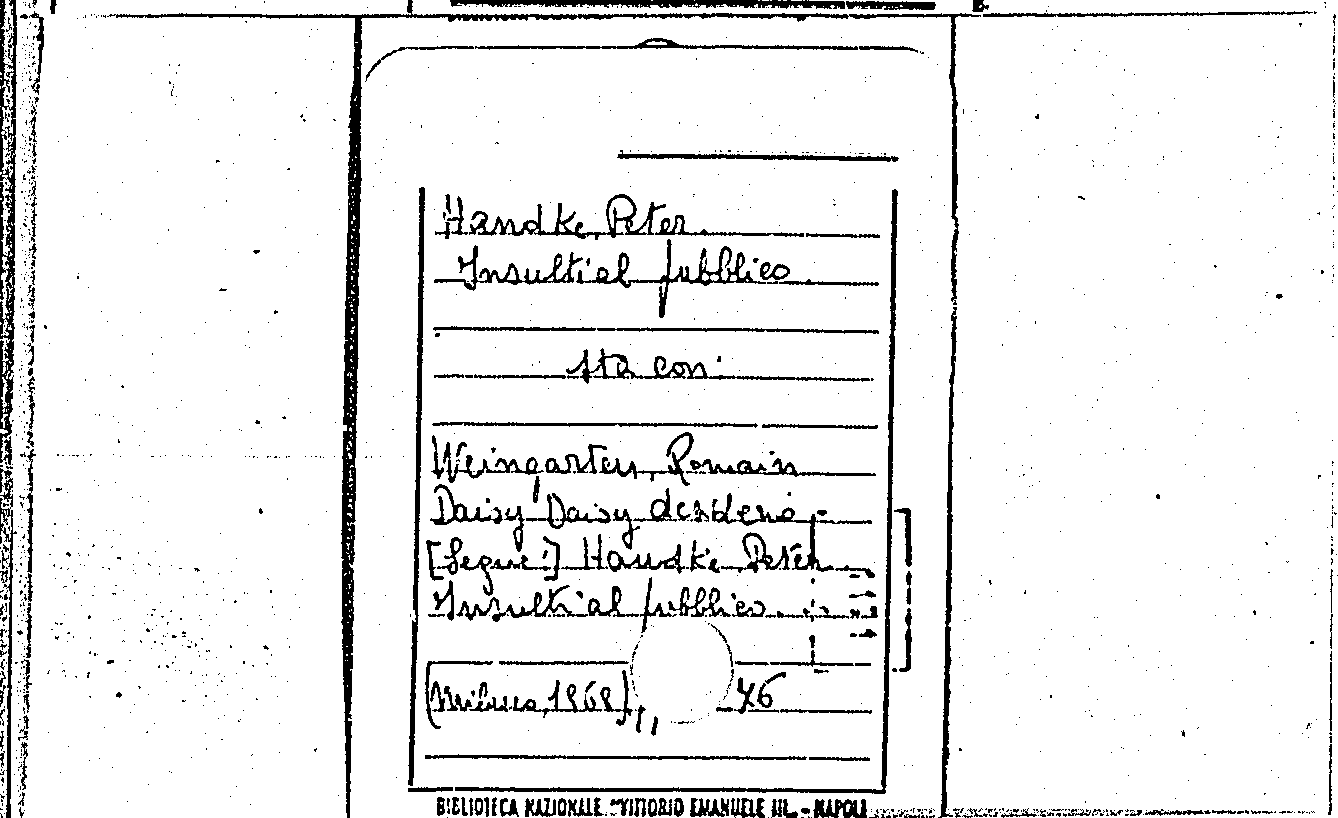 Handke, Peter.
Insulti al pubblico.
sta con:
Weingarten, Romain
Daisy Daisy desiderio.-
[Segue:] Handke Peter.
Insulti al pubblico.
(Milano, 1968),, 46
BIBLIOTECA NAZIONALE "VITTORIO EMANUELE III" - NAPOLI